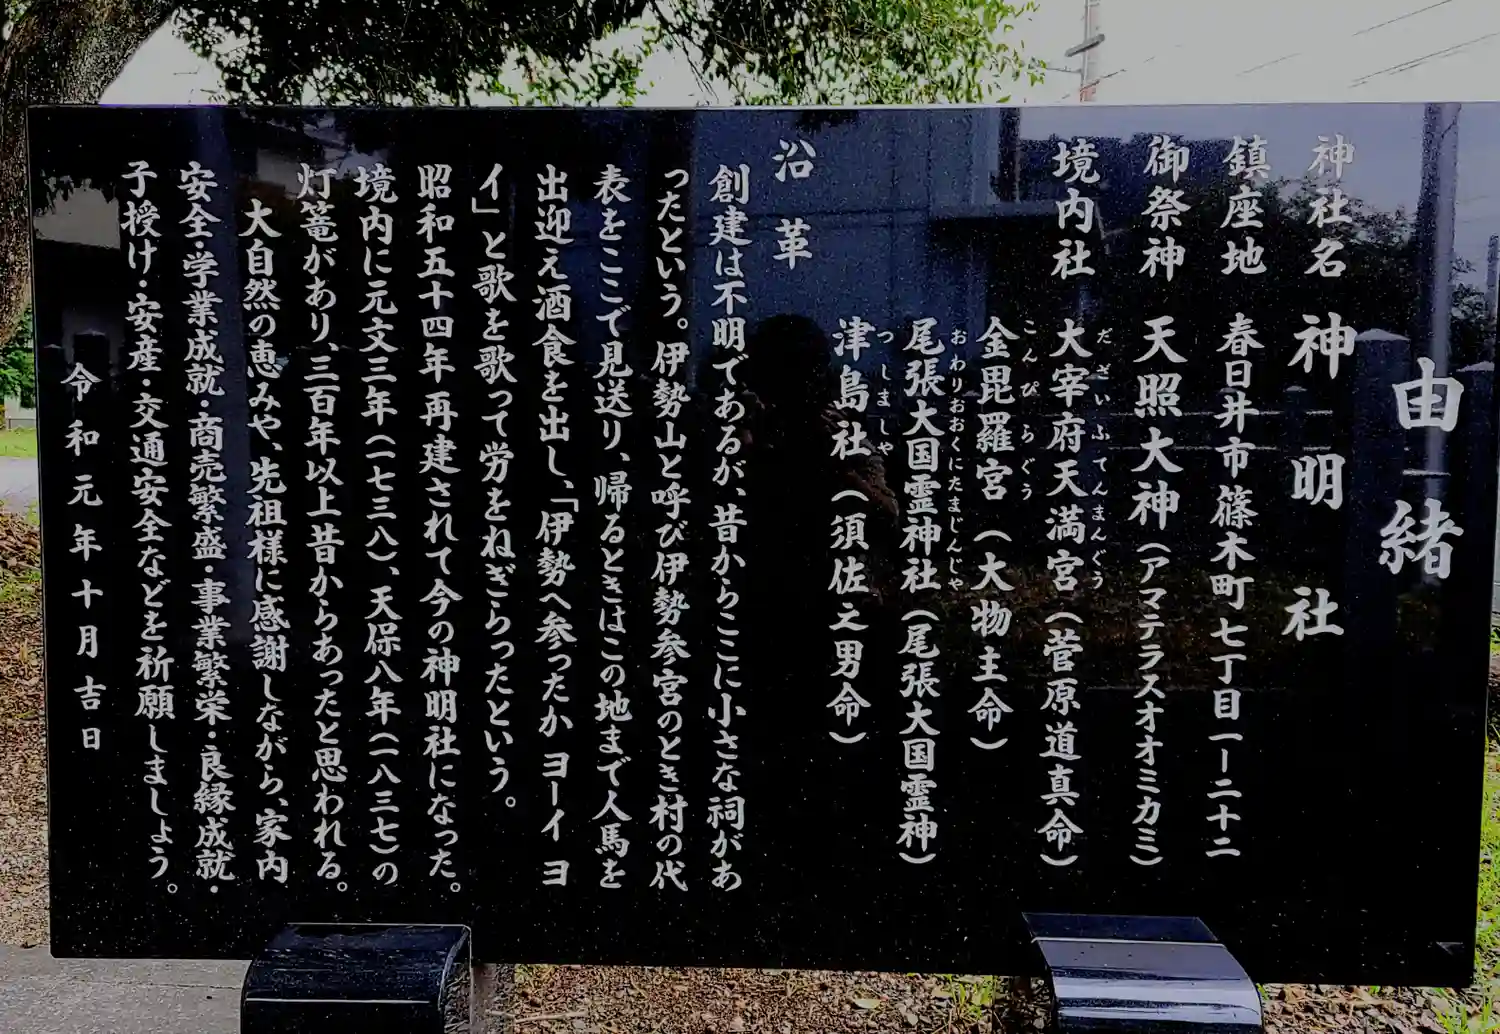 由緒
神社名 神明社
鎮座地 春日井市篠木町七丁目一ー二十二
御祭神 天照大神（アマテラスオオミカミ）
境内社 大宰府天満宮（菅原道真命）
だざいふてんまんぐう
金毘羅宮（大物主命）
こんぴらぐう
尾張大国霊神社（尾張大国霊神）
おわりおおくにたまじんじゃ
津島社（須佐之男命）
つしましゃ
沿革
創建は不明であるが、昔からここに小さな祠があ
ったという。伊勢山と呼び伊勢参宮のとき村の代
表をここで見送り、帰るときはこの地まで人馬を
出迎え酒食を出し、「伊勢へ参ったか ヨーイ ヨ
イ」と歌を歌って労をねぎらったという。
昭和五十四年再建されて今の神明社になった。
境内に元文三年（一七三八）、天保八年（一八三七）の
灯篭があり、三百年以上昔からあったと思われる。
大自然の恵みや、先祖様に感謝しながら、家内
安全・学業成就・商売繁盛・事業繁栄・良縁成就・
子授け・安産・交通安全などを祈願しましょう。
令和元年十月吉日